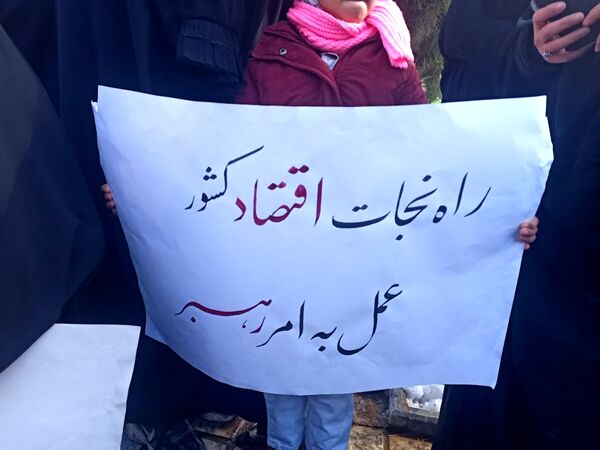 راه نجات اقتصاد کشور
عمل به امر رهبر